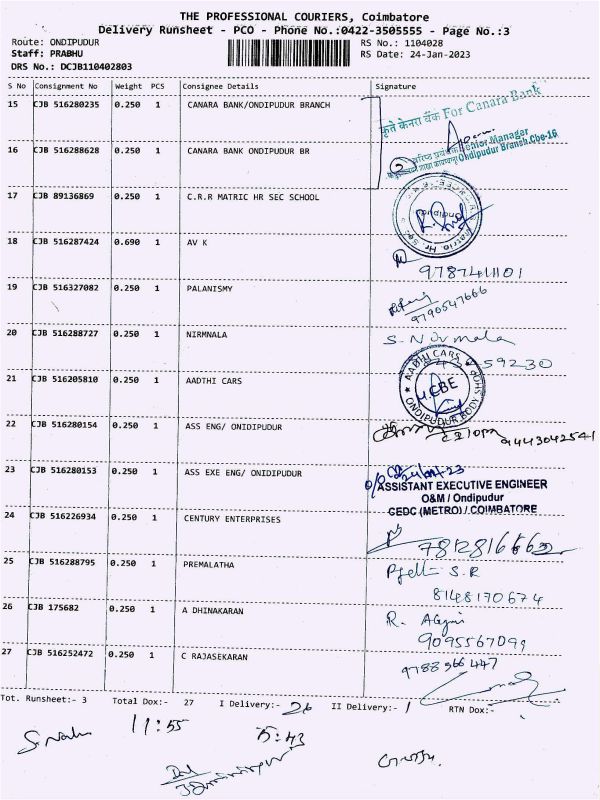 THE PROFESSIONAL COURIERS, Coimbatore
Delivery Runsheet - PCO - Phone No.:0422-3505555 - Page No.:3
Route: ONDIPUDUR RS No.: 1104028
Staff: PRABHU RS Date: 24-Jan-2023
DRS No.: DCJB110402803
S No Consignment No Weight PCS Consignee Details Signature
15 CJB 516280235 0.250 1 CANARA BANK/ONDIPUDUR BRANCH
कृते केनरा बैंक For Canara Bank
16 CJB 516288628 0.250 1 CANARA BANK ONDIPUDUR BR
2
Senior Manager
Ondipudur Branch, Cbe-16
17 CJB 89136869 0.250 1 C.R.R MATRIC HR SEC SCHOOL
18 CJB 516287424 0.690 1 AV K
9787411101
19 CJB 516327082 0.250 1 PALANISMY
9790547666
20 CJB 516288727 0.250 1 NIRMNALA S. Nirmala
59230
21 CJB 516205810 0.250 1 AADTHI CARS
AADHI CARS
CBE
ONDIPUDUR BODY SHOP
22 CJB 516280154 0.250 1 ASS ENG/ ONIDIPUDUR
9443042541
23 CJB 516280153 0.250 1 ASS EXE ENG/ ONIDIPUDUR
ASSISTANT EXECUTIVE ENGINEER
O&M / Ondipudur
CEDC (METRO) / COIMBATORE
24 CJB 516226934 0.250 1 CENTURY ENTERPRISES
25 CJB 516288795 0.250 1 PREMALATHA
8148170674
26 CJB 175682 0.250 1 A DHINAKARAN
9095567099
27 CJB 516252472 0.250 1 C RAJASEKARAN
9788966447
Tot. Runsheet:- 3 Total Dox:- 27 I Delivery:- 26 II Delivery:- 1 RTN Dox:-
11:55
15:43